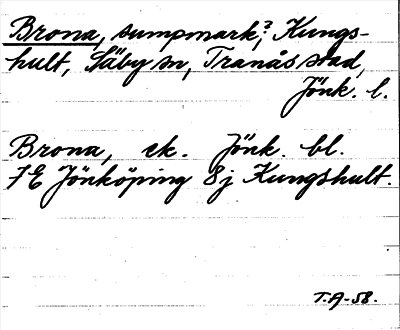 Brona, sumpmark,? Kungs-
hult, Säby sn, Tranås stad,
Jönk. l.
Brona, ek. Jönk. bl.
7E Jönköping 8j Kungshult.
T.A-58.